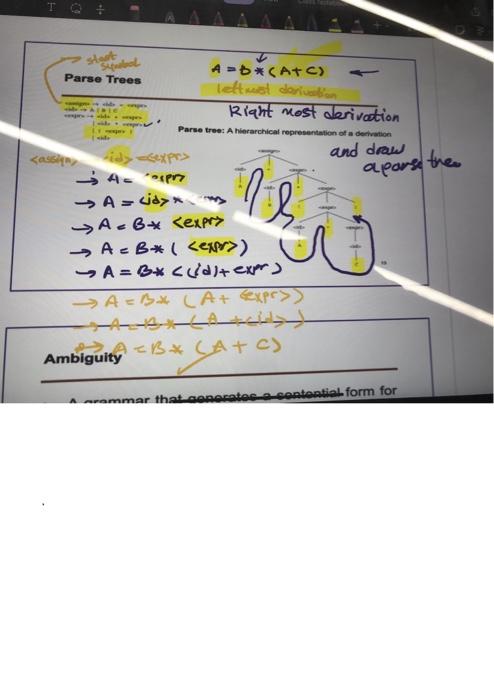 start
symbol
Parse Trees
A = B * (A+C) ←
left most derivation
Right most derivation
<assign> → <id> = <expr>
<id> → A | B | C
<expr> → <id> + <expr>
| <id> * <expr>
| ( <expr> )
| <id>
Parse tree: A hierarchical representation of a derivation
and draw
a parse tree
<assign> <id> = <expr>
→ A = <expr>
→ A = <id> * <expr>
→ A = B * <expr>
→ A = B * ( <expr> )
→ A = B * ( <id> + expr )
→ A = B * ( A + <expr> )
→ A = B * ( A + <id> )
→ A = B * ( A + C )
Ambiguity
A grammar that generates a sentential form for